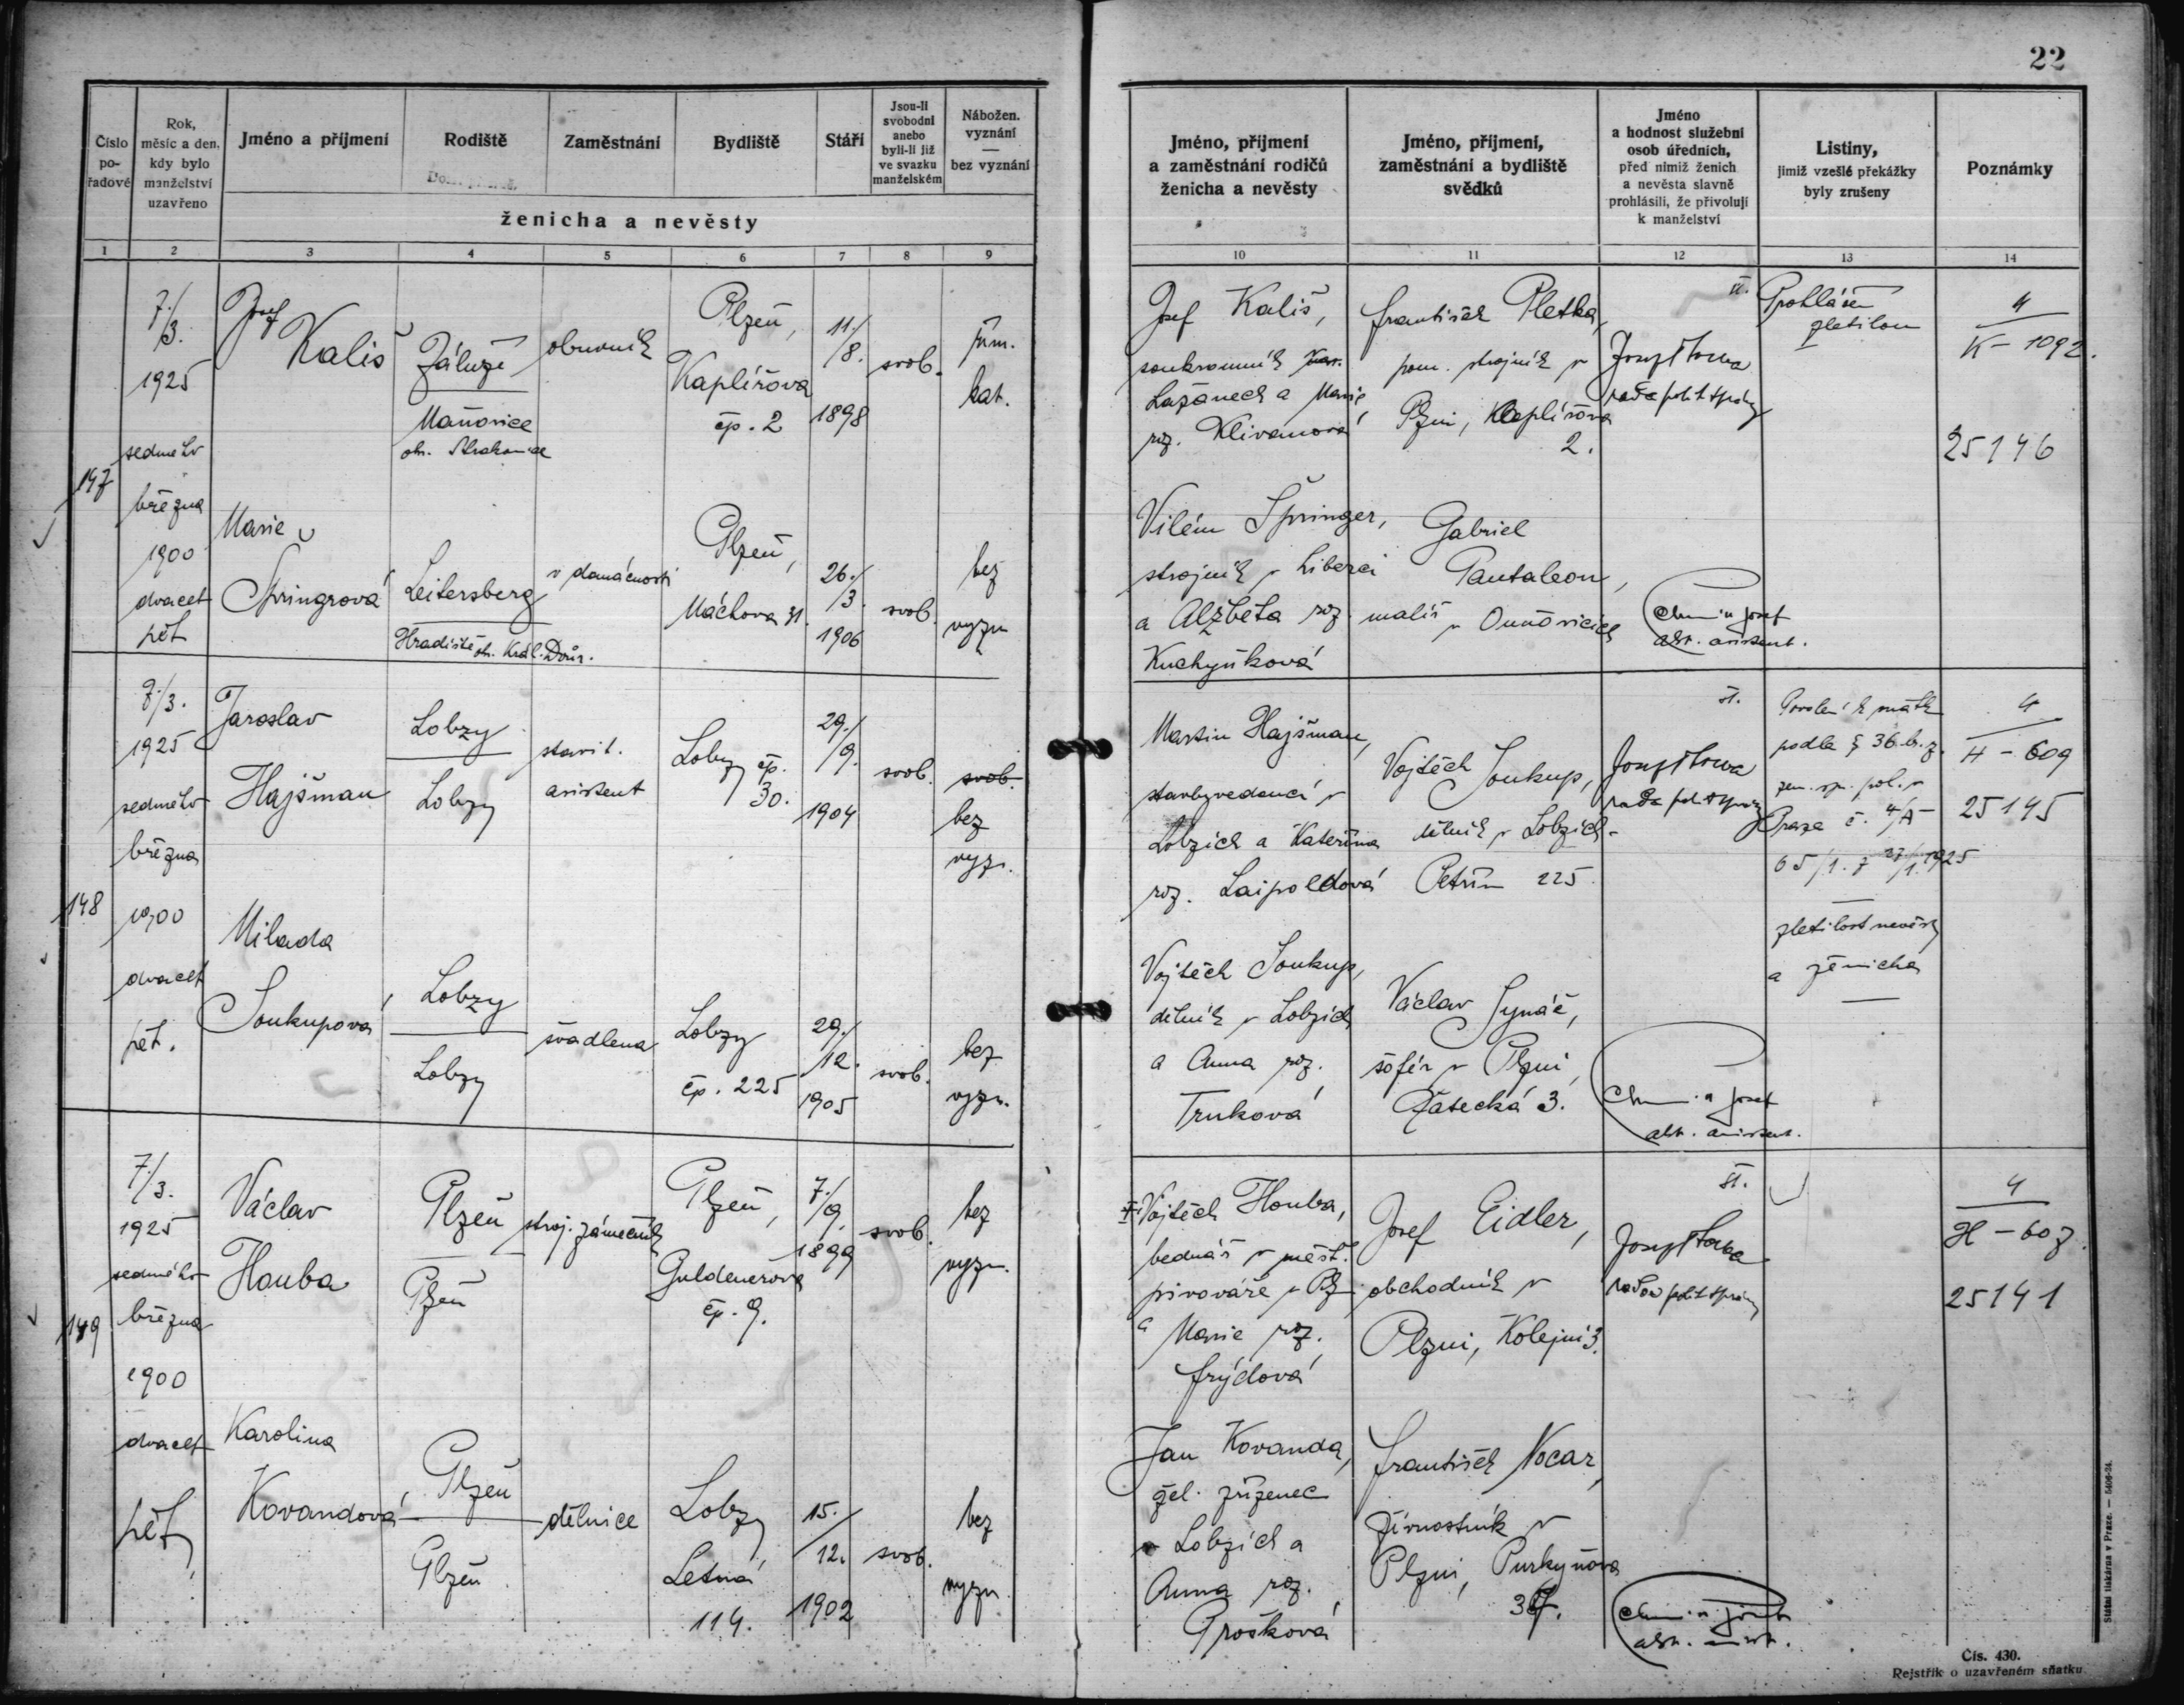 22
Číslo pořadové
Rok, měsíc a den, kdy bylo manželství uzavřeno
Jméno a příjmení
Rodiště
Zaměstnání
Bydliště
Stáří
Jsou-li svobodni anebo byli-li již ve svazku manželském
Nábožen. vyznání — bez vyznání
ženicha a nevěsty
Jméno, příjmení a zaměstnání rodičů ženicha a nevěsty
Jméno, příjmení, zaměstnání a bydliště svědků
Jméno a hodnost služební osob úředních, před nimiž ženich a nevěsta slavně prohlásili, že přivolují k manželství
Listiny, jimiž vzešlé překážky byly zrušeny
Poznámky
1 2 3 4 5 6 7 8 9 10 11 12 13 14
147
7./3.
1925
sedmého
března
1900
dvacet
pět
Josef
Kališ
Záluží
Maňovice
oh. Strakonice
obuvník
Plzeň,
Kaplířova
čp. 2
11./8.
1898
svob.
řím.
kat.
Josef Kališ,
soukromník
Lažanech a Marie
roz. Klivanová
František Pletka,
pom. strojník v
Plzni, Kaplířova
2.
rada polit správy
Prohlášen
zletilou
4
K - 1092.
25146
Marie
Špringrová
Leitersberg
Hradiště oh. Král. Dvůr.
v domácnosti
Plzeň,
Máchova 31.
26./3.
1906
svob.
bez
vyzn
Vilém Špringer,
strojník v Liberci
a Alžběta roz.
Kuchyňková
Gabriel
Pantaleon,
malíř
v Ounšovicích
Josef
asistent.
148
7./3.
1925
sedmého
března
1900
dvacet
pět.
Jaroslav
Hajšman
Lobzy
Lobzy
stavit.
asistent
Lobzy čp.
30.
29./9.
1904
svob.
svob.
bez
vyzn.
Martin Hajšman,
stavbyvedoucí v
Lobzích a Kateřina
roz. Laipoldová
Vojtěch Soukup,
dělník v Lobzích-
Petřín 225
št.
rada pol. správy
Povolení k sňatk
podle § 36. b. z.
zem. sp. pol. v
Praze č. 4/A-
65/1. z 27/1. 1925
4
H - 609
25145
Milada
Soukupová
Lobzy
Lobzy
švadlena
Lobzy
čp. 225
29./12.
1905
svob.
bez
vyzn.
Vojtěch Soukup,
dělník v Lobzích
a Anna roz.
Trnková
Václav Synáč,
šofér v Plzni,
Žatecká 3.
zletilost nevěsty
a ženicha
Josef
asistent.
149
7./3.
1925
sedmého
března
1900
dvacet
pět
Václav
Houba
Plzeň
Plzeň
stroj. zámečník
Plzeň,
Guldenerova
čp. 9.
7./9.
1899
svob.
bez
vyzn.
Vojtěch Houba,
bednář v měšť.
pivováře v Plz
a Marie roz.
Frýdová
Josef Eidler,
obchodník v
Plzni, Kolejní 3.
št.
rada polit správy
4
H - 607.
25141
Karolina
Kovandová
Plzeň
Plzeň
dělnice
Lobzy
Letná
114.
15./12.
1902
svob.
bez
vyzn
Jan Kovanda,
žel. zřízenec
v Lobzích a
Anna roz.
Prošková
František Nocar,
živnostník v
Plzni, Purkyňova
Státní tiskárna v Praze. — 5406-24.
Čís. 430.
Rejstřík o uzavřeném sňatku